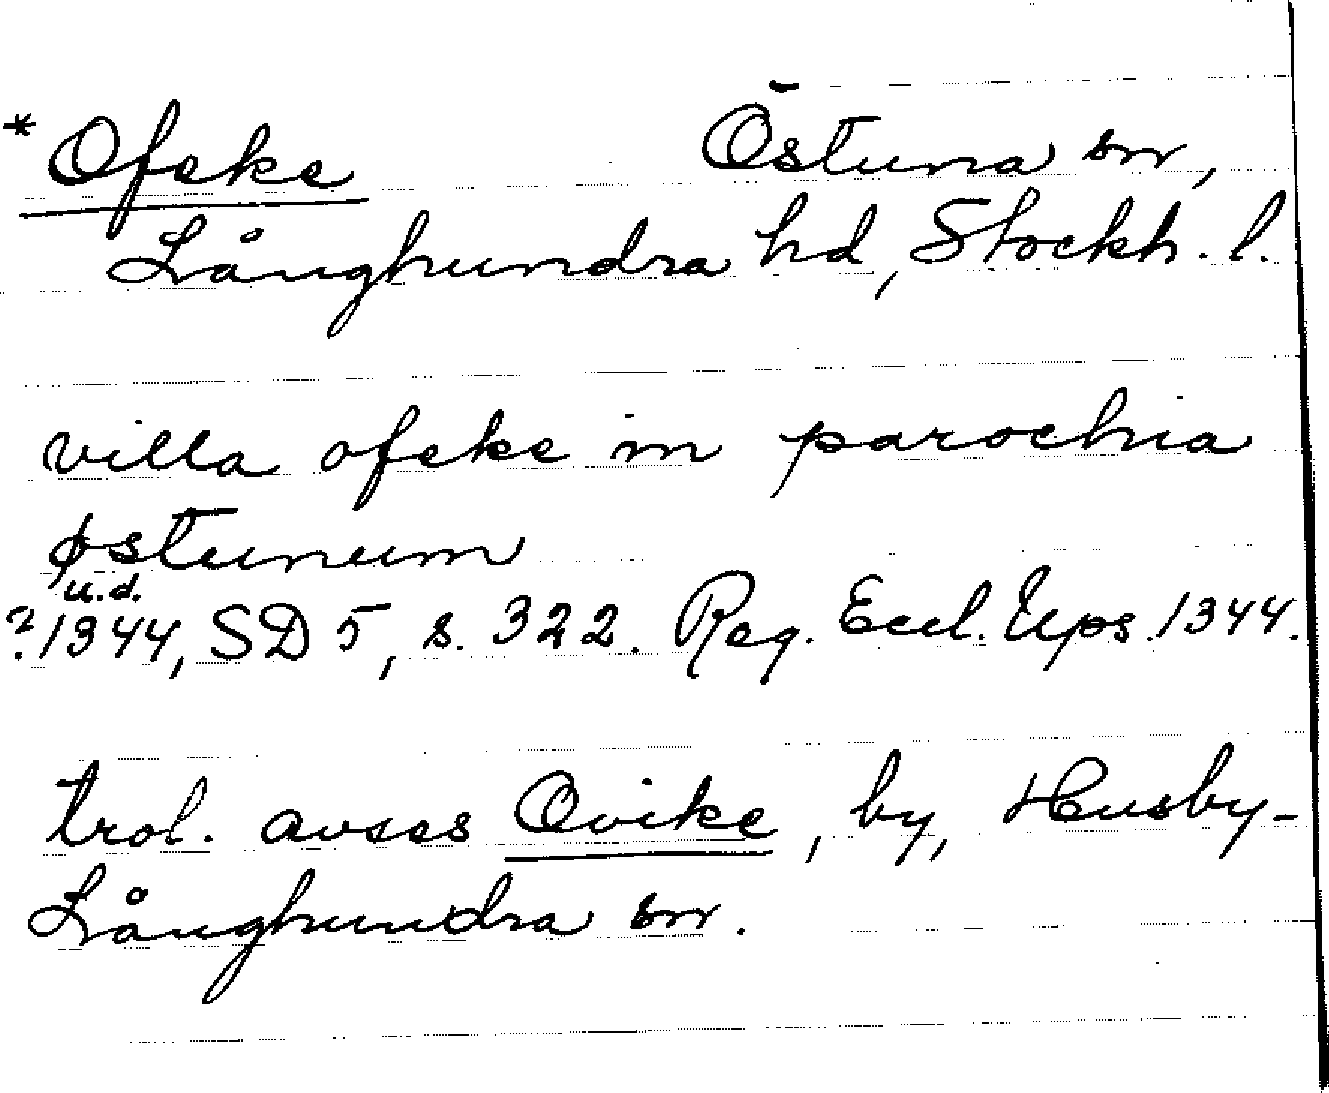 * Ofeke Östuna sn,
Långhundra hd, Stockh. l.
villa ofeke in parochia
østunum
u.d.
?1344, SD 5, s. 322. Reg. Eccl. Ups. 1344.
trol. avses Ovike, by, Husby-
Långhundra sn.